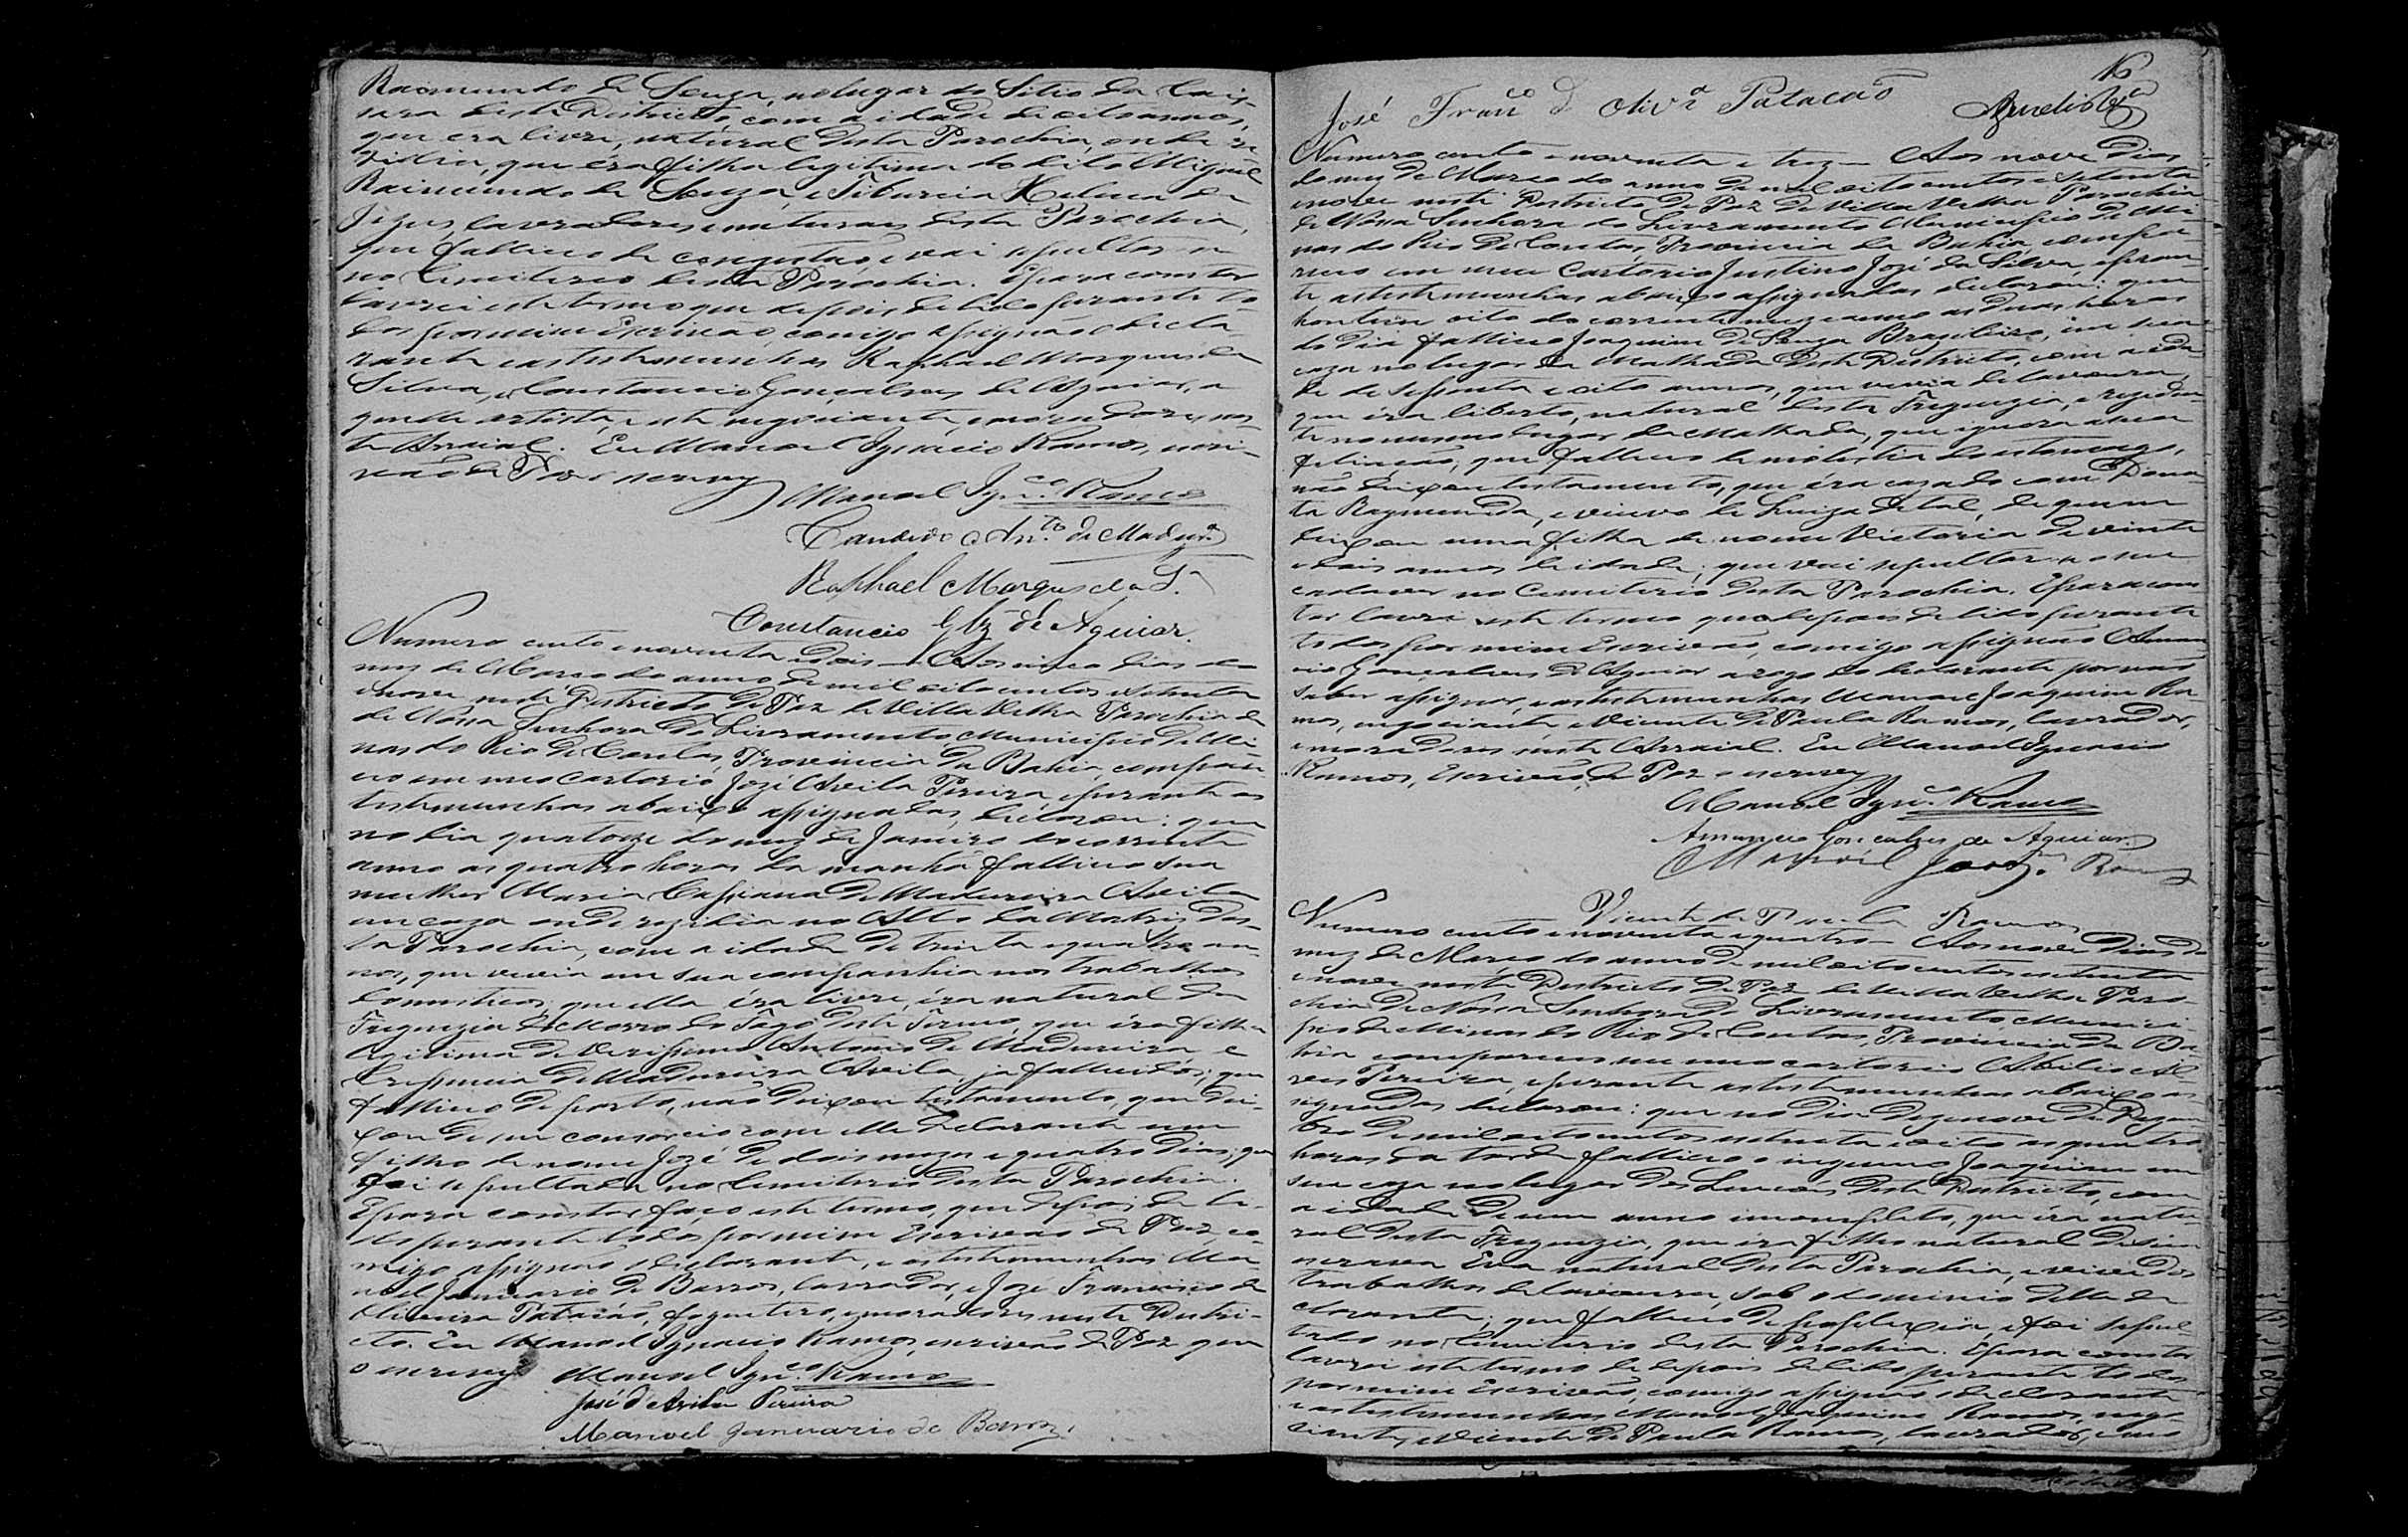 Raimundo de Souza, no lugar do Sitio da Cai-
sara deste Districto, com a idade de oito annos,
que era livre, natural desta Parochia, onde re-
zidia, que éra filha legitima do dito Miguel
Raimundo de Souza, e Tiburcia Helena de
Jezus, lavradores, e naturaes desta Parochia,
que falleceo de congestão, e vai sepultar-se
no Cemiterio desta Parochia. E para constar
lavrei este termo que depois de lido perante to-
dos por mim Escrivão, comigo assignão o decla-
rante e as testemunhas Raphael Marques da
Silva, e Constancio Gonçalves de Aguiar, a
quelle artista, e este negociante, e moradores nes-
te Arraial. Eu Manoel Ignacio Ramos, escri-
vão de Paz o escrevy
Manoel Ignco. Ramos
Candido Anto. de Madura.
Raphael Marques da Sa.
Constancio Glz de Aguiar.
Numero cento e noventa e dois — Aos cinco dias do
mez de Março do anno de mil oito centos e setenta
e nove neste Districto de Paz de Villa Velha Parochia de
de Nossa Senhora do Livramento Municipio de Mi-
nas do Rio de Contas, Provincia da Bahia, compare-
ceo em meo Cartorio José Avila Pereira e perante as
testemunhas abaixo assignadas, declarou: que
no dia quatorze do mez de Janeiro do corrente
anno as quatro horas da manhã falleceo sua
mulher Maria Cassiana de Madureira Avila
em caza onde rezidia no Alto da Matris des-
ta Parochia, com a idade de trinta e quatro an-
nos, que vivia em sua companhia nos trabalhos
domesticos; que ella éra livre, éra natural da
Freguezia do Morro do Fogo deste Termo, que éra filha
legitima de Verissimo Antonio de Madureira e
Crespuncia de Madureira Avila, ja fallecidos; que
falleceo de parto, não deixou testamento, que dei-
xou de seu consorcio com elle declarante um
filho de nome José de dois mezes e quatro dias; que
foi sepultada no Cemiterio desta Parochia.
E para constar faço este termo, que depois de li-
do perante todos por mim Escrivão de Paz, co-
migo assignão o declarante, e as testemunhas Ma-
noel Januario de Barros, lavrador, e José Francisco de
Oliveira Patacão, fogueteiro, e moradores neste Distri-
cto. Eu Manoel Ignacio Ramos, escrivão de Paz que
o escrevy Manoel Ignco. Ramos
José d'Avila Pereira
Manoel Januario de Barros.
16
José Franco. d Olivra. Patacaõ
Numero cento e noventa e trez — Aos nove dias
do mez de Março do anno de mil oito centos e setenta
e nove neste Districto de Paz de Villa Velha Parochia
de Nossa Senhora do Livramento Municipio de Mi-
nas do Rio de Contas, Provincia da Bahia, compa-
receo em meu Cartorio Justino José da Silva, e peran-
te as testemunhas abaixo assignadas declarou: que
hontem oito do corrente mez e anno as duas horas
do dia falleceo Joaquim de Souza Brazileiro, em sua
caza no lugar da Malhada deste Districto, com a ida-
de de sessenta e oito annos, que vivia de lavoura,
que éra liberto, natural desta Freguezia, e reziden-
te no mesmo lugar da Malhada, que ignora a sua
filiação, que falleceo de molestia de estomago,
não deixou testamento, que éra cazado com Dona-
ta Raymunda, e viuvo de Luiza de tal, de quem
deixou uma filha de nome Victoria de vinte
e dois annos de idade; que vai sepultar-se o seu
cadaver no Cemiterio desta Parochia. E para cons-
tar lavrei este termo que depois de lido perante
todos por mim Escrivão, comigo assignão Aman-
cio Gonçalves de Aguiar a rogo do declarante por não
saber assignar, e as testemunhas Manoel Joaquim Ra-
mos, negociante, e Vicente de Paula Ramos, lavrador,
e moradores neste Arraial. Eu Manoel Ignacio
Ramos, Escrivão de Paz o escrevy
Manoel Ignco. Ramos
Amancio Goncalves de Aguiar
Manoel Joaqm. Ramos
Vicente de Paula Ramos
Numero cento e noventa e quatro — Aos nove dias do
mez de Março do anno de mil oito centos e setenta
e nove neste Districto de Paz de Villa Velha Paro-
chia de Nossa Senhora do Livramento Munici-
pio de Minas do Rio de Contas, Provincia da Ba-
hia compareceo em meo cartorio Abilio Al-
ves Pereira, e perante as testemunhas abaixo as-
signadas declarou: que no dia dezenove de Dezem-
bro de mil oito centos e setenta e oito as quatro
horas da tarde falleceo o ingenuo Joaquim em
sua caza no lugar dos Lencóes deste Districto, com
a idade de um anno incompleto, que éra natu-
ral desta Freguezia, que éra filho natural de sua
escrava Eva natural desta Parochia, e vive dos
trabalhos de lavoura, sob o dominio delle de-
clarante, que falleceo de poplexia, e foi sepul-
tado no Cemiterio desta Parochia. E para constar
lavrei este termo de depois de lido perante todos
por mim Escrivão, comigo assignão o declarante
e as testemunhas Manoel Joaquim Ramos, nego-
ciante, e Vicente de Paula Ramos, lavrador, e mo